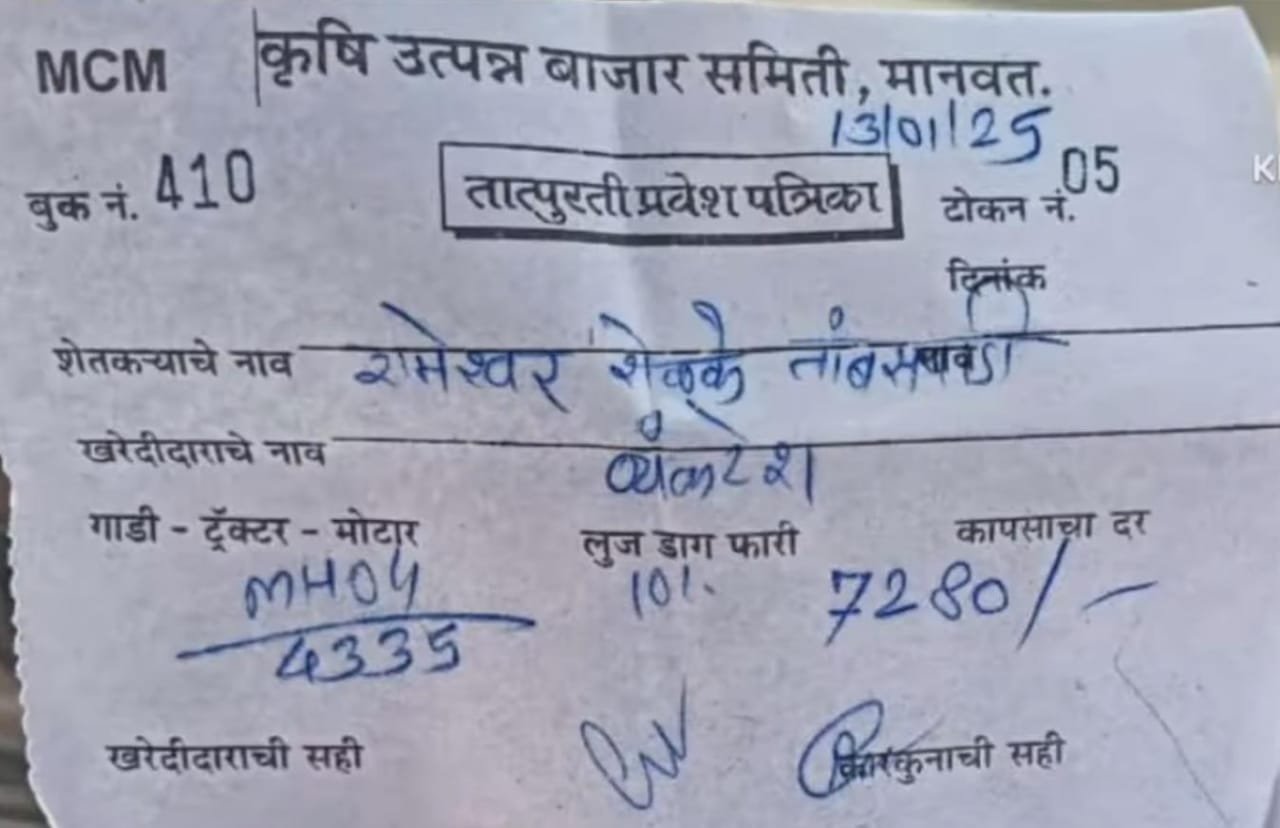 MCM कृषि उत्पन्न बाजार समिती, मानवत.
13/01/25
बुक नं. 410 तात्पुरती प्रवेश पत्रिका टोकन नं. 05
दिनांक
शेतकऱ्याचे नाव रामेश्वर शेळके
खरेदीदाराचे नाव व्यंकटेश
गाडी - ट्रॅक्टर - मोटार लुज डाग फारी कापसाचा दर
MH04 101. 7280/-
4335
खरेदीदाराची सही कारकुनाची सही